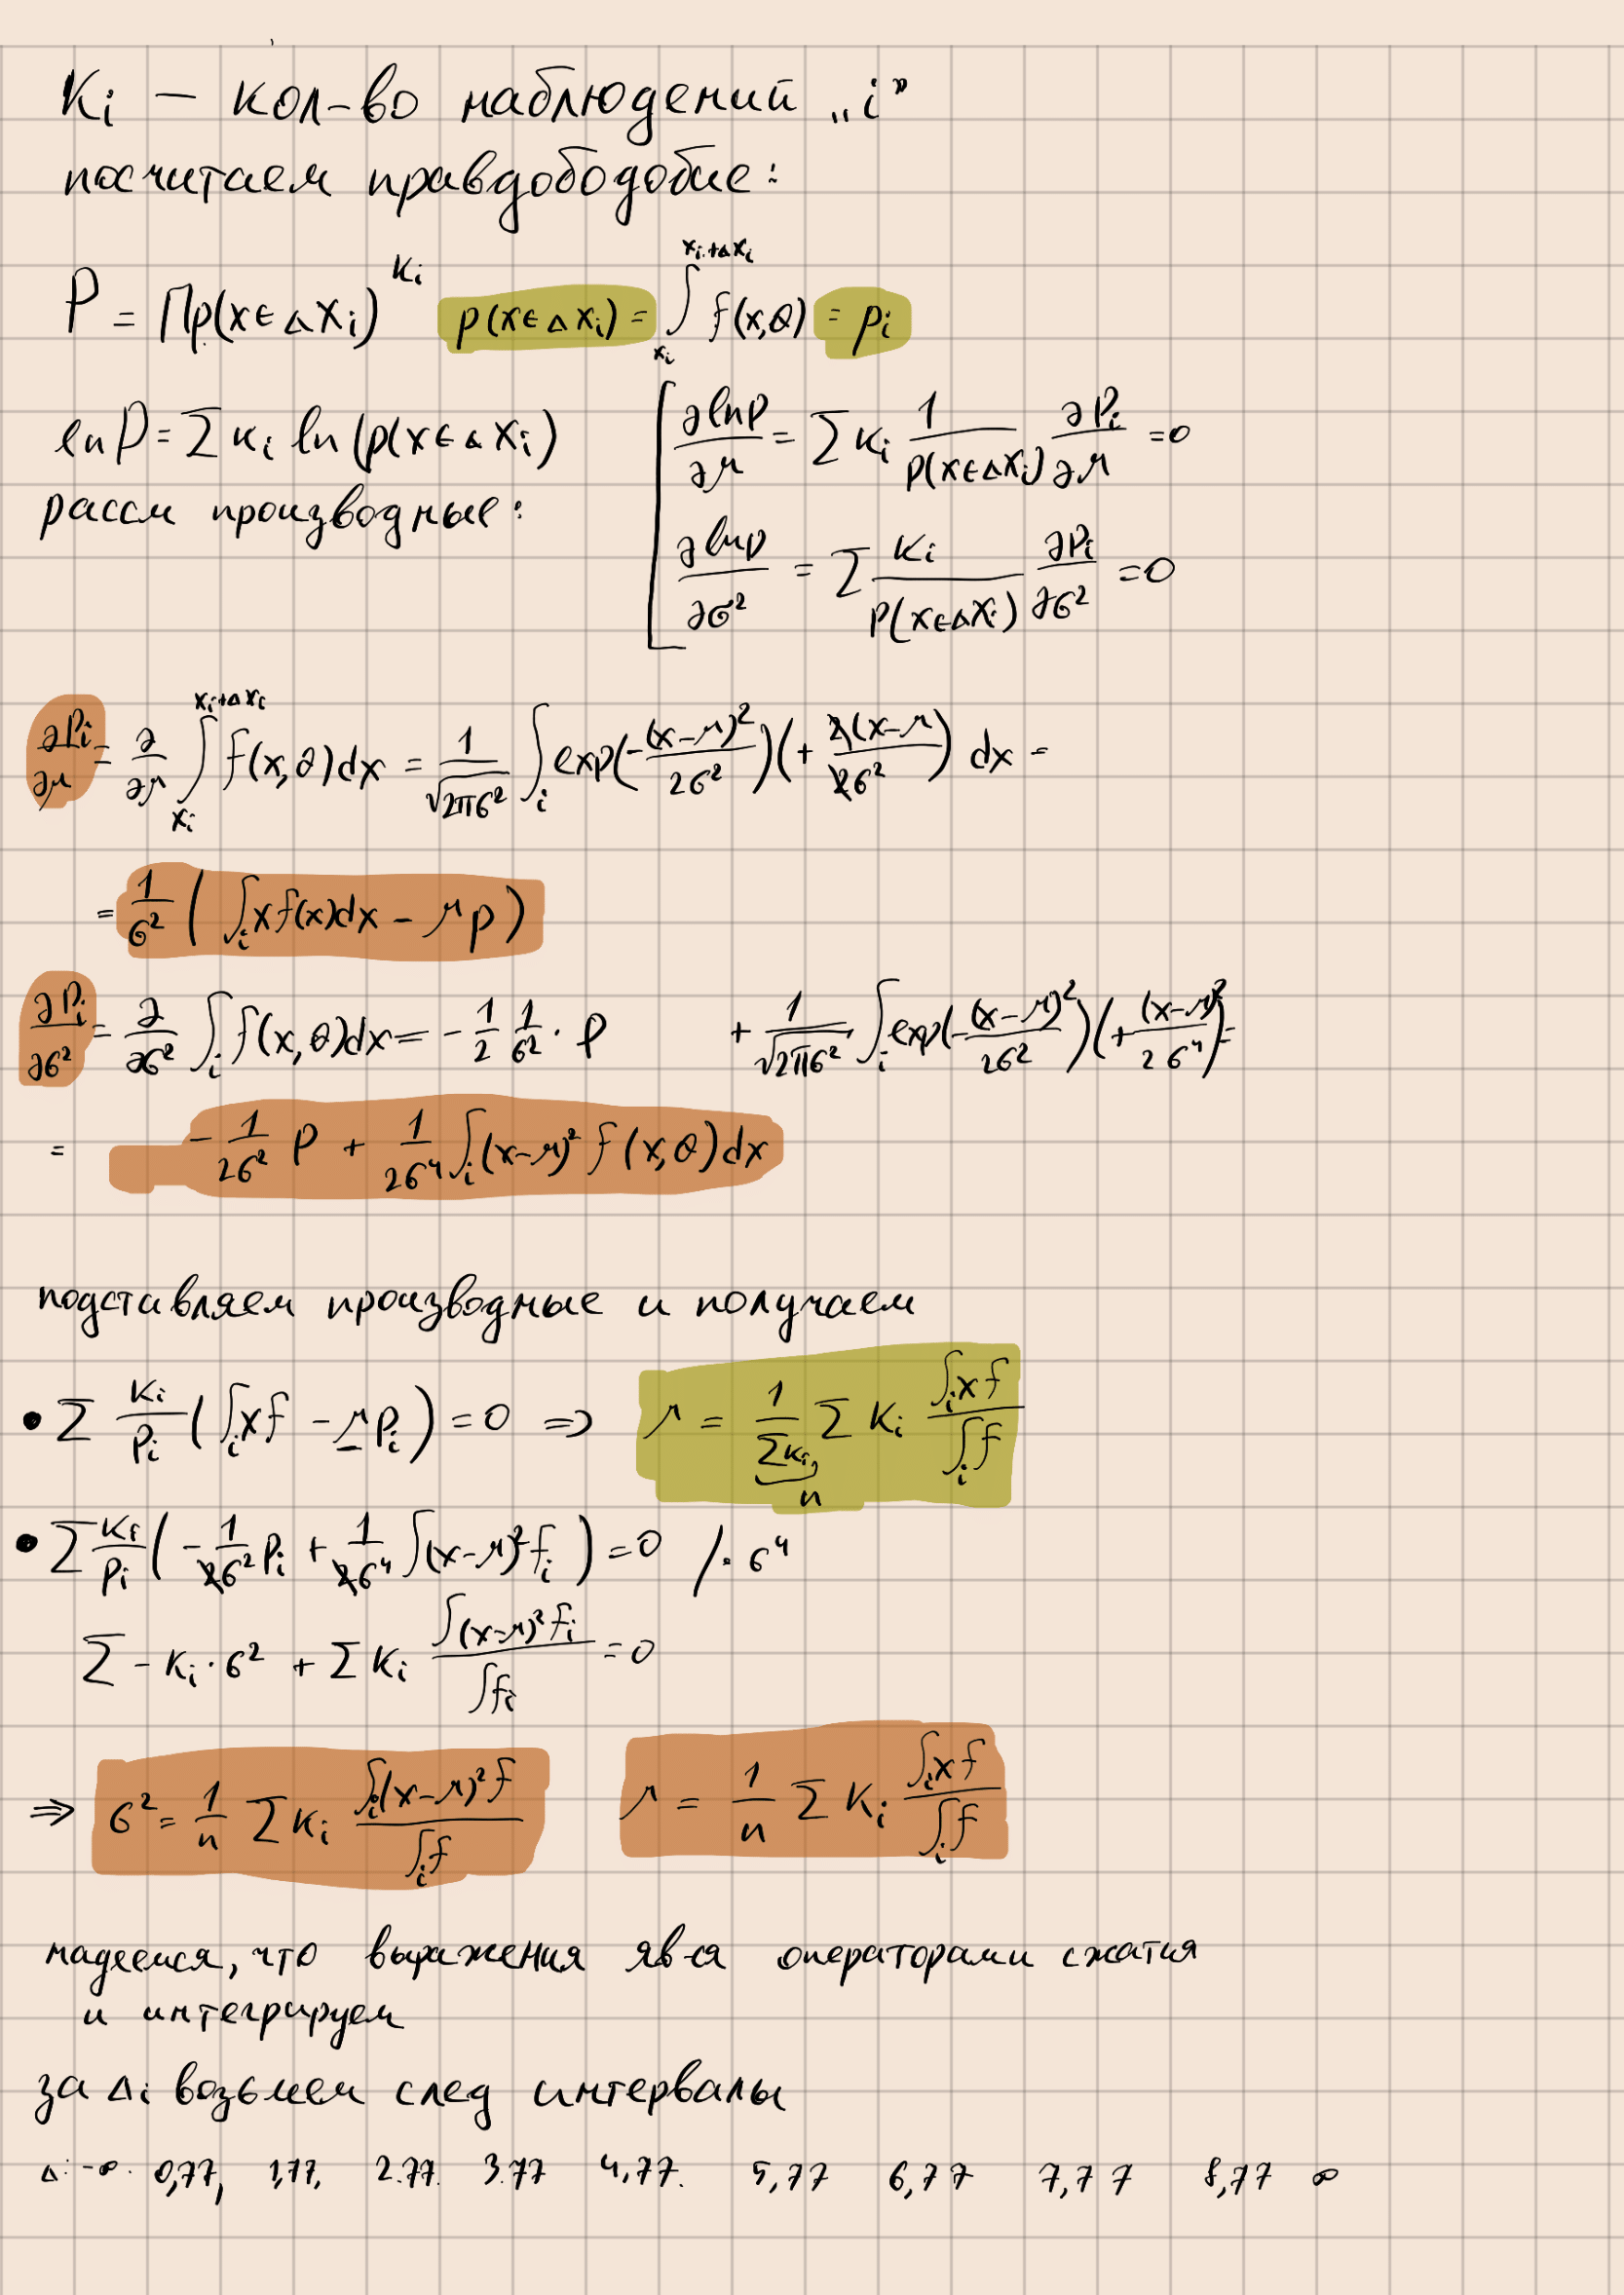 Ki — кол-во наблюдений „i”
посчитаем правдободобие:
P = ∏p(x∈Δxi)^Ki p(x∈Δxi) = ∫_{xi}^{xi+Δxi} f(x,θ) = pi
ln P = Σ Ki ln(p(x∈Δxi)
рассм производные:
∂lnP/∂μ = Σ Ki 1/p(x∈Δxi) ∂Pi/∂μ = 0
∂lnp/∂σ² = Σ Ki/p(x∈Δxi) ∂Pi/∂σ² = 0
∂Pi/∂μ = ∂/∂μ ∫_{xi}^{xi+Δxi} f(x,θ)dx = 1/√(2πσ²) ∫_i exp(-(x-μ)²/2σ²)(+ 2(x-μ/2σ²) dx =
= 1/σ² ( ∫_i x f(x)dx - μp )
∂Pi/∂σ² = ∂/∂σ² ∫_i f(x,θ)dx = - 1/2 1/σ² · P + 1/√(2πσ²) ∫_i exp(-(x-μ)²/2σ²)(+(x-μ)²/2σ⁴) =
= - 1/2σ² P + 1/2σ⁴ ∫_i (x-μ)² f(x,θ)dx
подставляем производные и получаем
• Σ Ki/Pi ( ∫_i xf - μPi ) = 0 ⇒ μ = 1/ΣKi Σ Ki ∫_i xf / ∫_i f
n
• Σ Ki/Pi ( - 1/2σ² Pi + 1/2σ⁴ ∫(x-μ)² fi ) = 0 /· σ⁴
Σ - Ki · σ² + Σ Ki ∫(x-μ)² fi / ∫fi = 0
⇒ σ² = 1/n Σ Ki ∫_i (x-μ)² f / ∫_i f μ = 1/n Σ Ki ∫_i xf / ∫_i f
надеемся, что выражения яв-ся операторами сжатия
и интегрируем
за Δi возьмем след интервалы
Δ: -∞. 0,77, 1,77, 2.77. 3.77 4,77. 5,77 6,77 7,77 8,77 ∞